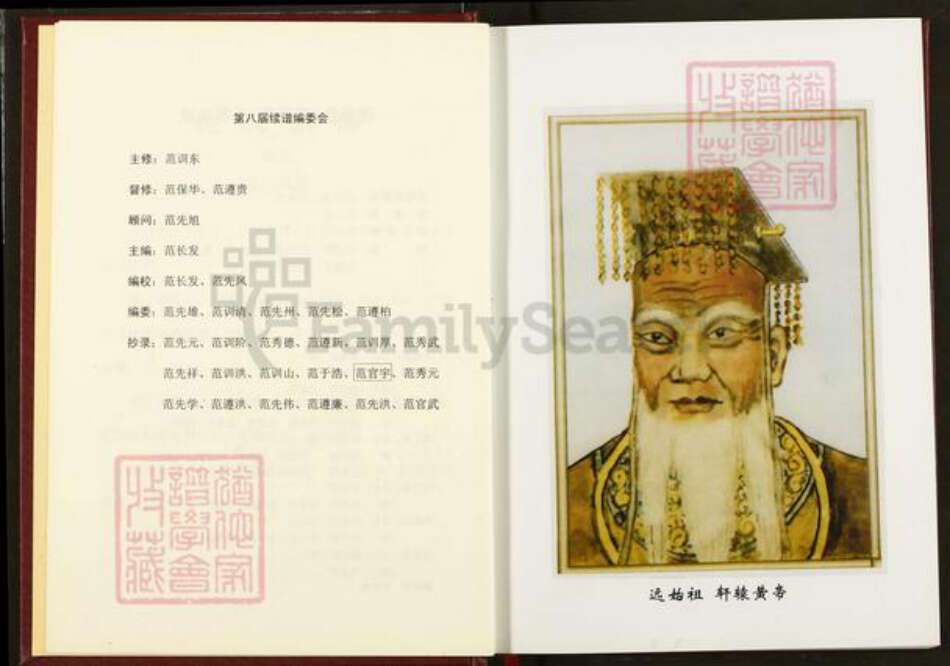 第八届续谱编委会
主修：范训东
督修：范保华、范遵贵
顾问：范先旭
主编：范长发
编校：范长发、范先凤
编委：范先雄、范训清、范先州、范先松、范遵柏
抄录：范先元、范训阶、范秀德、范遵新、范训厚、范秀武
范先祥、范训洪、范训山、范于浩、范官宇、范秀元
范先学、范遵洪、范先伟、范遵廉、范先洪、范官武
FamilySea
远始祖 轩辕黄帝